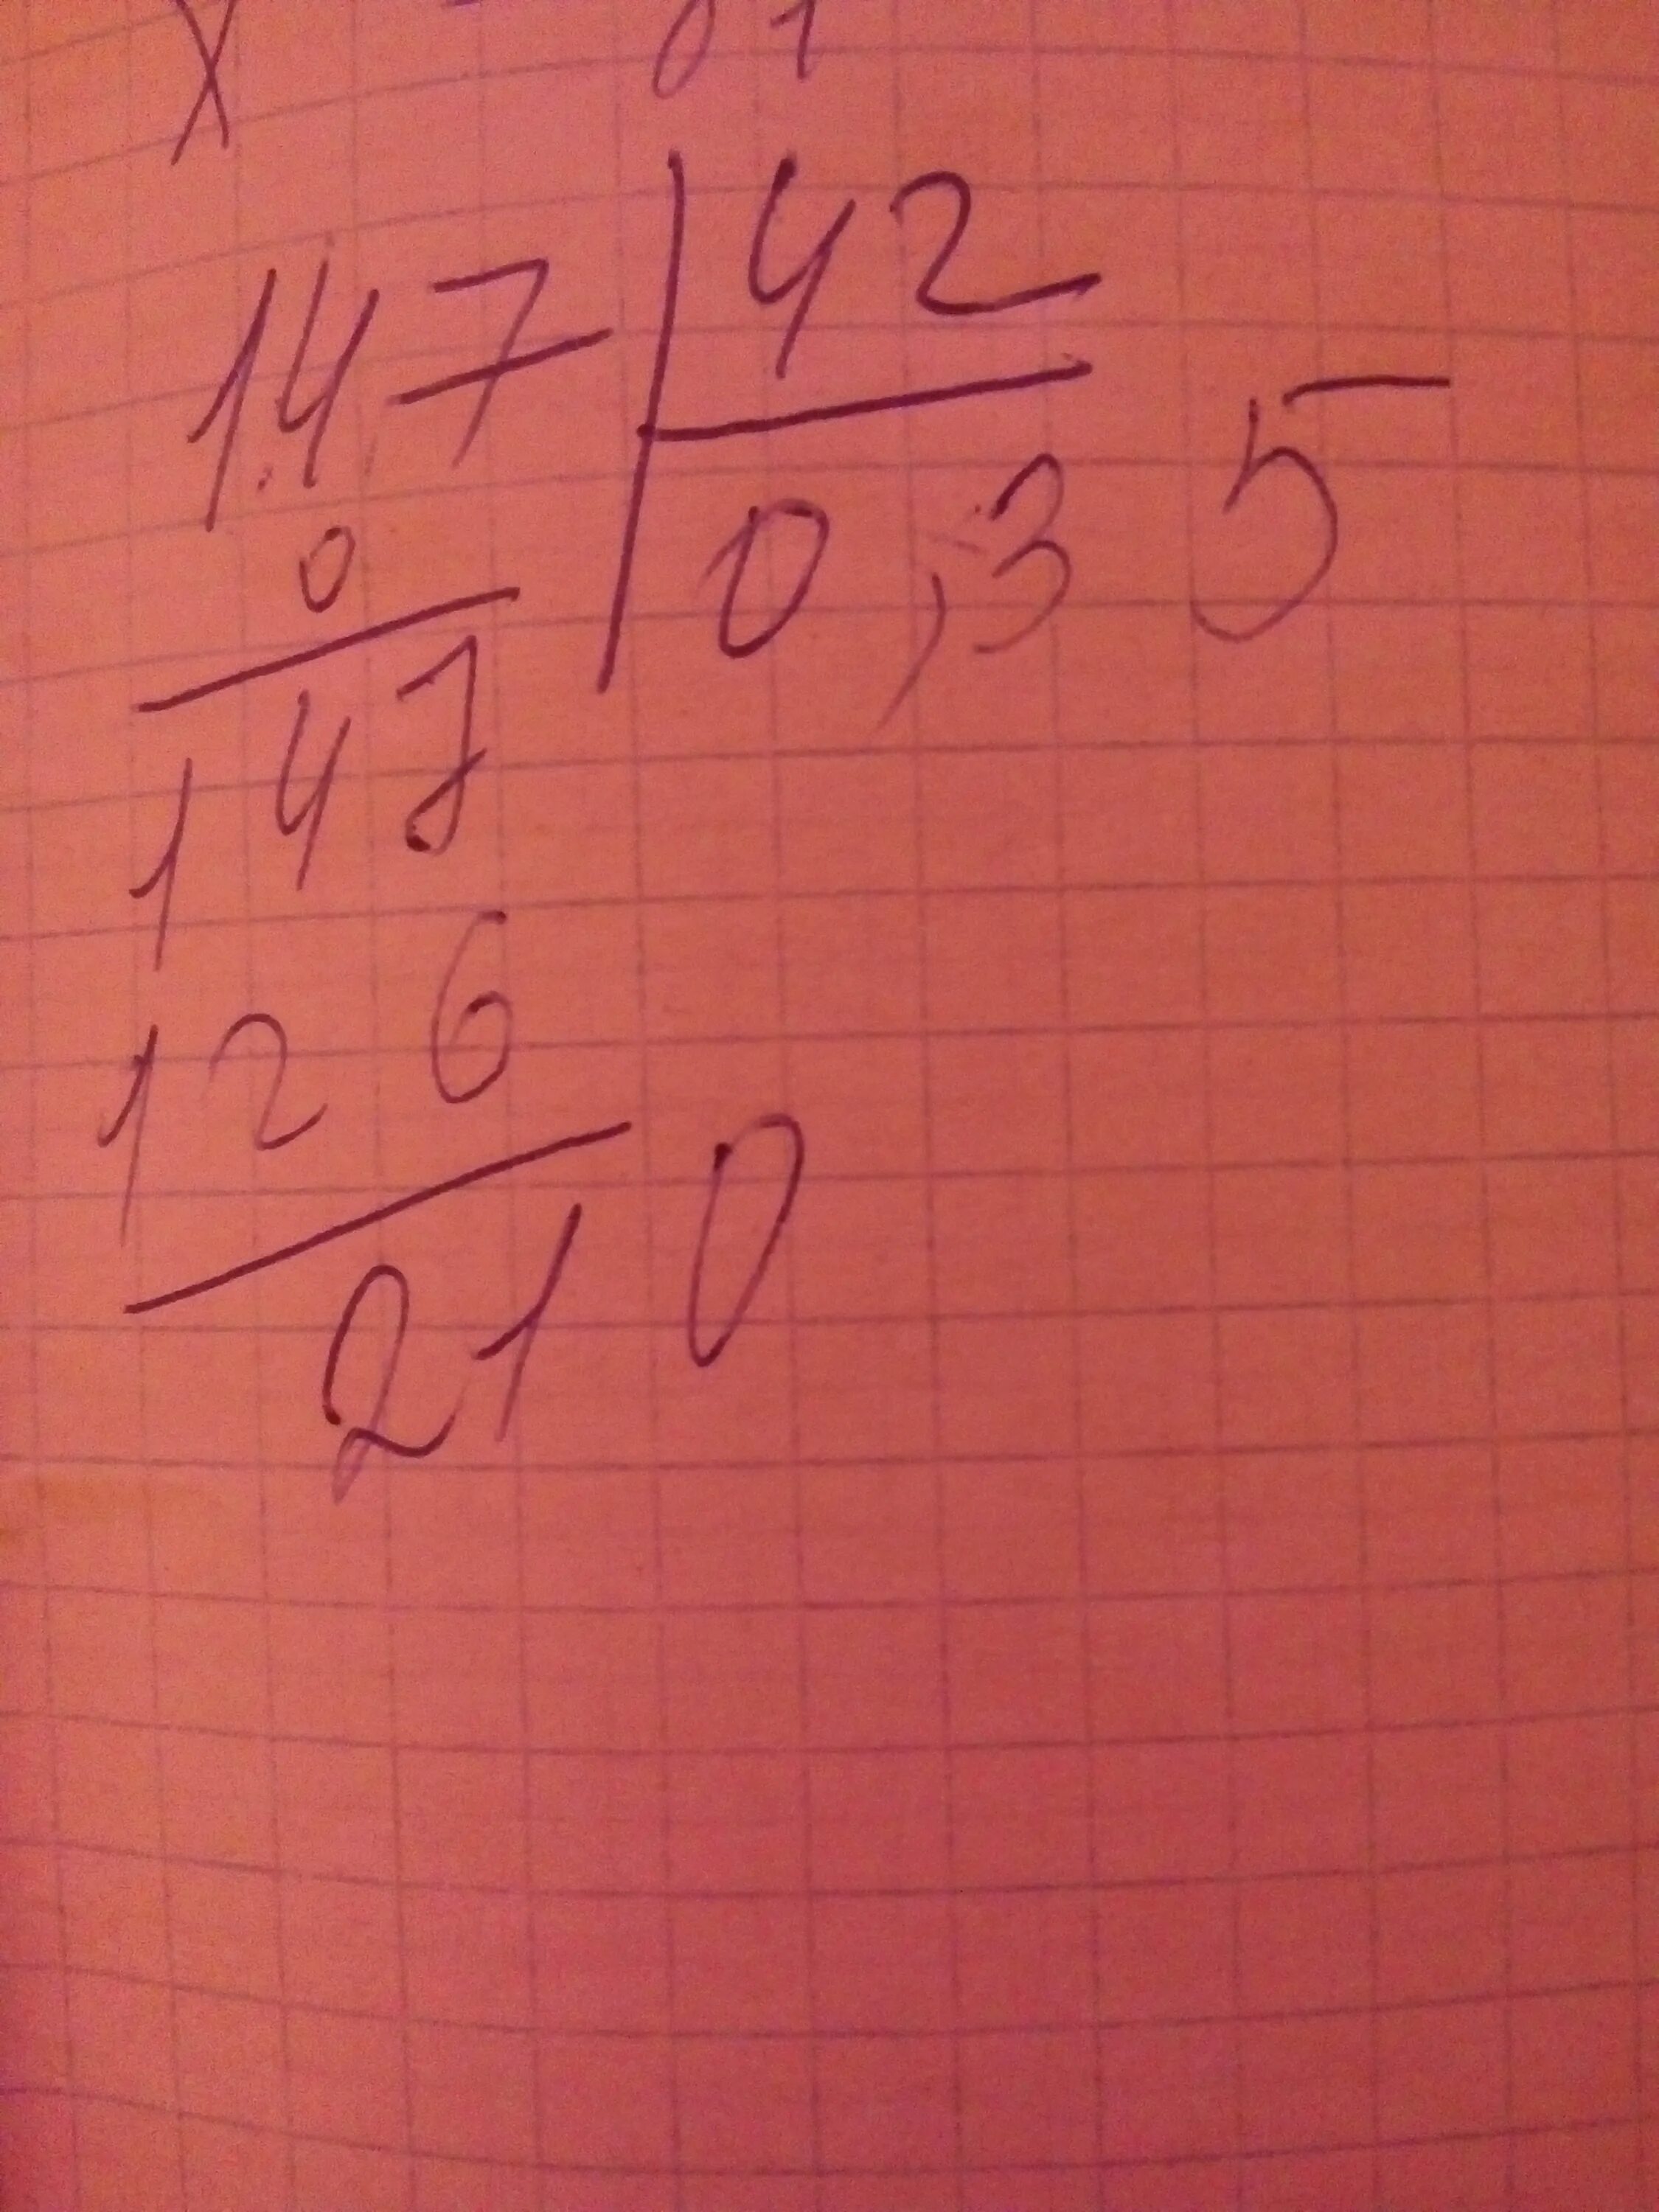 14,7 42
0,35
0
147
126
210